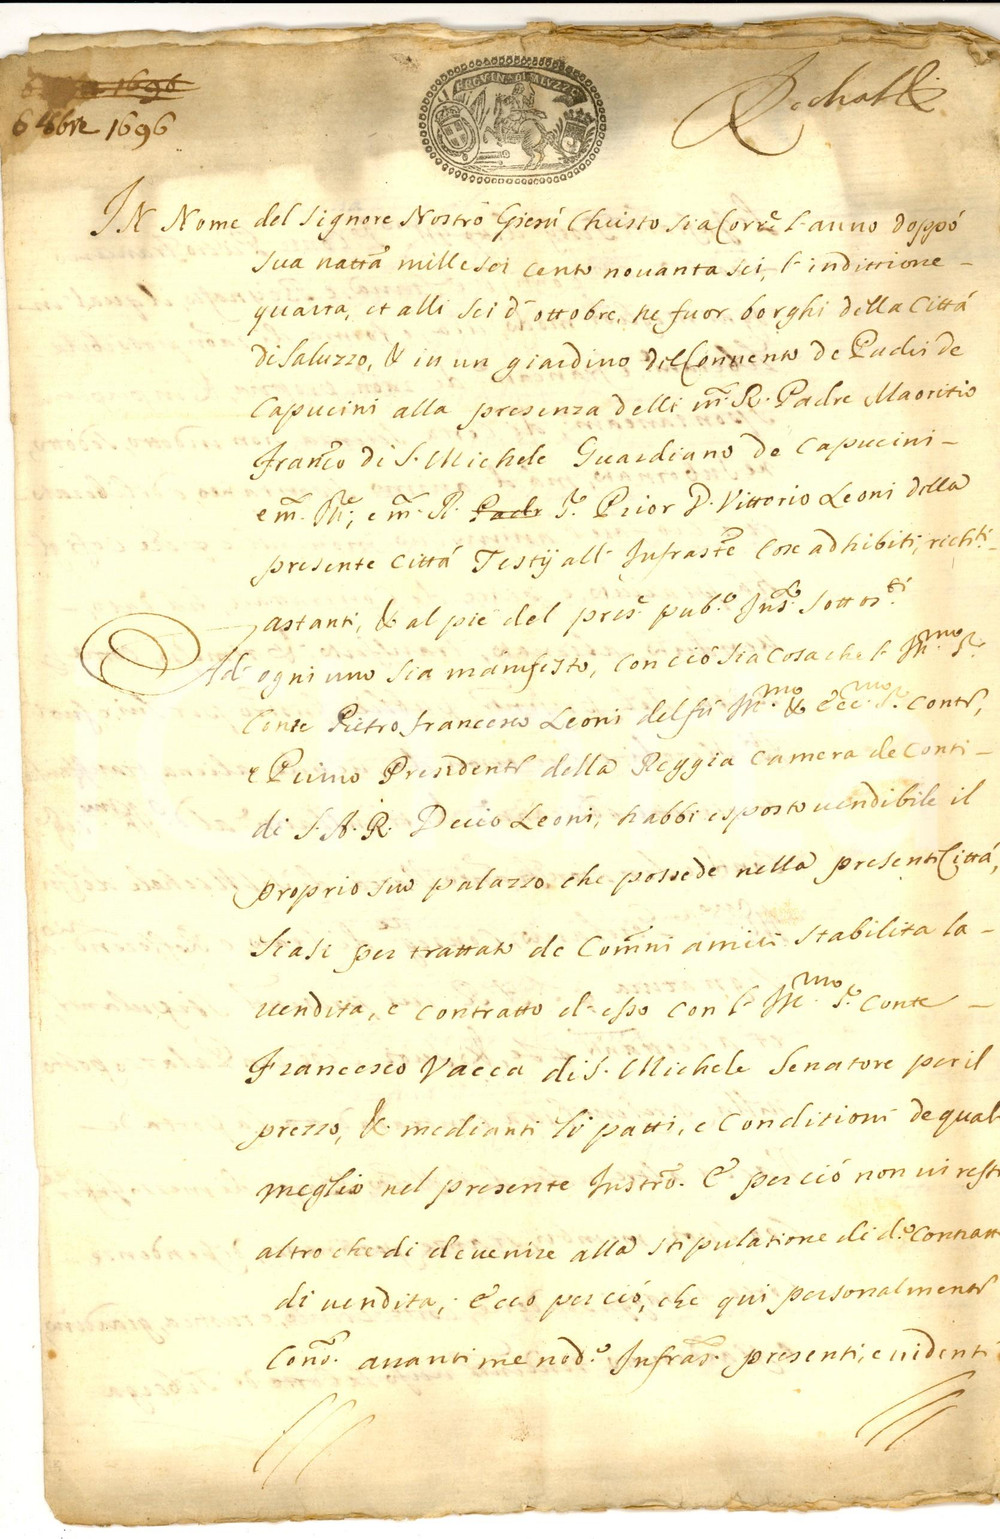 6 8bre 1696
PROVIN. DI SALUZZO
IN Nome del Signore Nostro Giesù Christo sia Corre l'anno doppo
sua nattã mille sei cento novanta sei, l'indittione
quarta, et alli sei d'ottobre, ne fuor borghi della Città
di Saluzzo, & in un giardino del Convento de Padri de
Capucini alla presenza delli m. R. Padre Maoritio
Franco di S. Michele Guardiano de Capucini
e m. R. Padr Sr. Prior D. Vittorio Leoni della
presente Città Testij all' Infraste Cose adhibiti, richti
astanti, & al piè del pres. pub.o Ins.to sottos.ti
Ad ogni uno sia manifesto, con ciò sia cosa che l' Ill.mo Sr.
Conte Pietro Francesco Leoni del fù Ill.mo & Ecc.mo Sr. Conte,
e Primo Presidente della Reggia Camera de Conti
di S. A. R. Decio Leoni, habbi esposto vendibile il
proprio suo palazzo che possede nella presente Città,
siasi per trattato de Comni amici stabilita la
vendita, e contratto d'esso con l' Ill.mo Sr. Conte
Francesco Vacca di S. Michele Senatore per il
prezzo, & medianti li patti, e Conditioni de qual
meglio nel presente Instro. E perciò non vi resti
altro che di devenire alla stipulatione di d.o Contratt
di vendita, Ecco perciò, che qui personalmente
Cons. avanti me nod.o Infras. presenti, e videnti